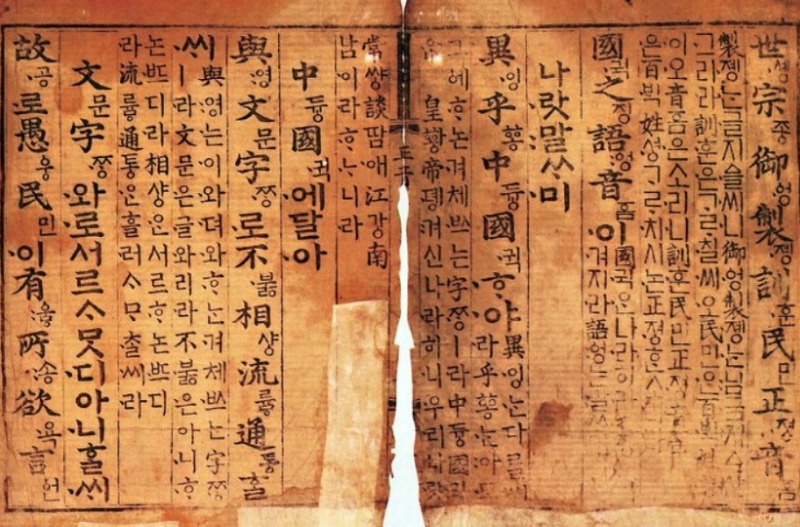 世솅宗종御엉製졩訓훈民민正졍音ᅙᅳᆷ
製졩ᄂᆞᆫ글지ᅀᅳᆯ씨니御엉製졩ᄂᆞᆫ님금지ᅀᅳ샨
그리라訓훈ᄋᆞᆫᄀᆞᄅᆞ칠씨오民민ᄋᆞᆫ百ᄇᆡᆨ姓셩
이오音ᅙᅳᆷ은소리니訓훈民민正졍音ᅙᅳᆷ
은百ᄇᆡᆨ姓셩ᄀᆞᄅᆞ치시논正졍ᄒᆞᆫ소리라
國귁之징語ᅌᅥᆼ音ᅙᅳᆷ이國귁ᄋᆞᆫ나라히라
겨지라語ᅌᅥᆼ는말
나랏말ᄊᆞ미
異잉乎ᅘᅩᆼ中듀ᇰ國귁ᄒᆞ야異잉ᄂᆞᆫ다ᄅᆞᆯ씨
라乎ᅘᅩᆼᄂᆞᆫ아모
그ᅌᅦᄒᆞ논겨체ᄡᅳ는字ᄍᆞᆼㅣ라中듀ᇰ國귁
ᄋᆞᆫ皇ᅘᅪᇰ帝뎽겨신나라히니우리나랏
常쌰ᇰ談땀애江가ᇰ南
남이라ᄒᆞᄂᆞ니라
中듀ᇰ國귁에달아
與영文문字ᄍᆞᆼ로不부ᇙ相샤ᇰ流류ᇢ通토ᇰᄒᆞᆯ
ᄊᆡ與영는이와뎌와ᄒᆞ는겨체ᄡᅳ는字ᄍᆞᆼ
ㅣ라文문은글와리라不부ᇙ은아니ᄒᆞ
논ᄠᅳ디라相샤ᇰᄋᆞᆫ서르ᄒᆞ논ᄠᅳ디
라流류ᇢ通토ᇰᄋᆞᆫ흘러ᄉᆞᄆᆞᄎᆞᆯ씨라
文문字ᄍᆞᆼ와로서르ᄉᆞᄆᆞᆺ디아니ᄒᆞᆯᄊᆡ
故공로愚ᅌᅮᆼ民민이有우ᇢ所송欲욕言언